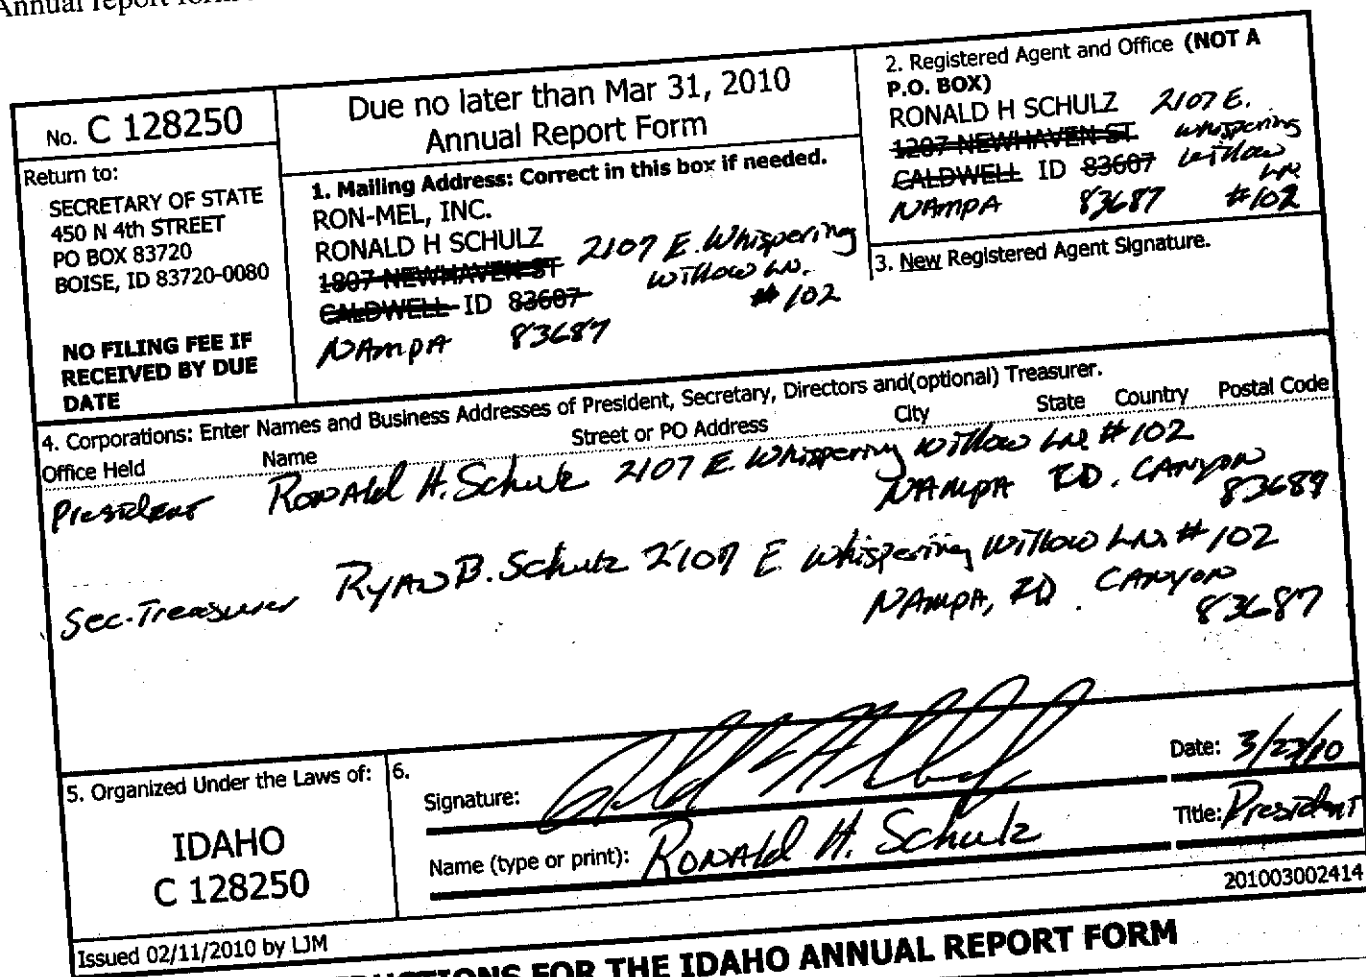 Annual report form
No. C 128250
Return to:
SECRETARY OF STATE
450 N 4th STREET
PO BOX 83720
BOISE, ID 83720-0080
NO FILING FEE IF
RECEIVED BY DUE
DATE
Due no later than Mar 31, 2010
Annual Report Form
1. Mailing Address: Correct in this box if needed.
RON-MEL, INC.
RONALD H SCHULZ 2107 E. Whispering
1807 NEWHAVEN ST Willow LN.
CALDWELL ID 83607 #102
NAMPA 83687
2. Registered Agent and Office (NOT A
P.O. BOX)
RONALD H SCHULZ 2107 E.
1207 NEWHAVEN ST Whispering
CALDWELL ID 83607 Willow
LN
NAMPA 83687 #102
3. New Registered Agent Signature.
4. Corporations: Enter Names and Business Addresses of President, Secretary, Directors and(optional) Treasurer.
Office Held Name Street or PO Address City State Country Postal Code
President Ronald H. Schulz 2107 E. Whispering Willow Ln #102
NAMPA ID. CANYON
83689
Sec-Treasurer Ryan B. Schulz 2107 E Whispering Willow Ln. #102
NAMPA, ID. CANYON
83687
5. Organized Under the Laws of:
IDAHO
C 128250
6.
Signature:
Date: 3/22/10
Name (type or print): Ronald H. Schulz
Title: President
201003002414
Issued 02/11/2010 by LJM
FOR THE IDAHO ANNUAL REPORT FORM